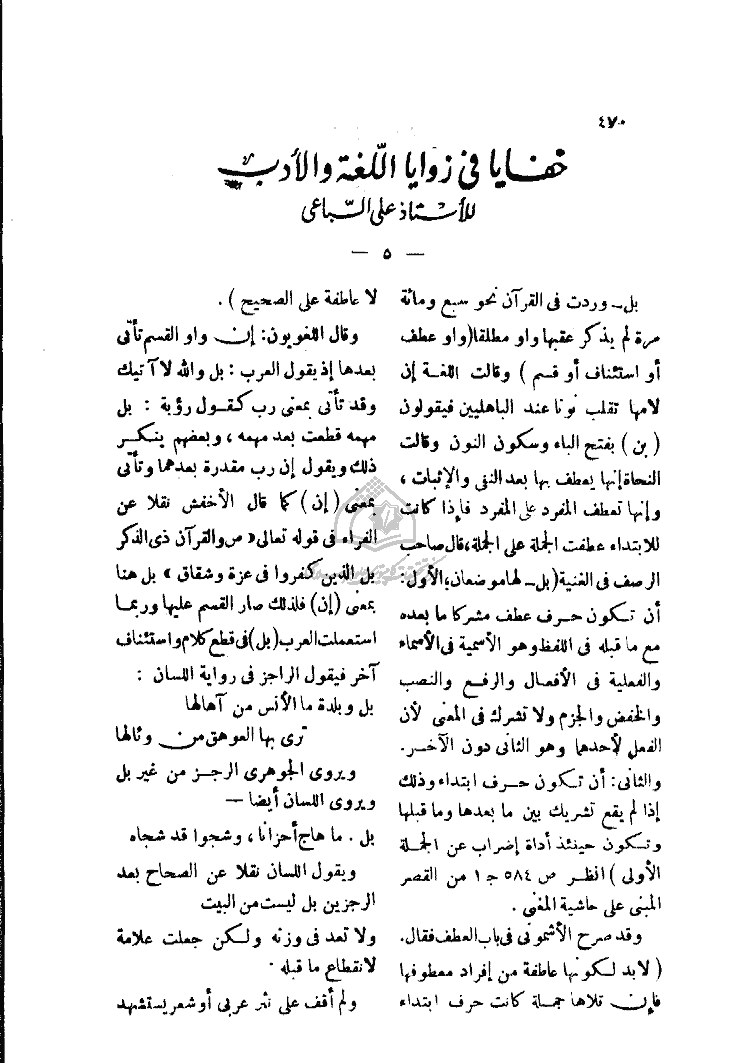 ٤٧٠
خفايا في زوايا اللغة والأدب
للأستاذ على السباعى
— ٥ —
بل — وردت فى القرآن نحو سبع ومائة
مرة لم يذكر عقبها واو مطلقا (واو عطف
أو استئناف أو قسم ) وقالت اللغة إن
لامها تقلب نونا عند الباهليين فيقولون
( بن ) بفتح الباء وسكون النون وقالت
النحاة إنها يعطف بها بعد النفى والإثبات ،
وإنها تعطف المفرد على المفرد فإذا كانت
للابتداء عطفت الجملة على الجملة، قال صاحب
الرصف فى الغنية (بل — لها موضعان، الأول:
أن تكون حرف عطف مشركا ما بعده
مع ما قبله فى اللفظ وهو الأسمية فى الأسماء
والفعلية فى الأفعال والرفع والنصب
والخفض والجزم ولا تشرك فى المعنى لأن
الفعل لأحدهما وهو الثانى دون الآخر.
والثانى: أن تكون حرف ابتداء وذلك
إذا لم يقع تشريك بين ما بعدها وما قبلها
وتكون حينئذ أداة إضراب عن الجملة
الأولى ) انظر ص ٥٨٤ ج ١ من القصر
المبنى على حاشية المغنى .
وقد صرح الأشمونى فى باب العطف فقال.
( لابد لكونها عاطفة من إفراد معطوفها
فإن تلاها جملة كانت حرف ابتداء
لا عاطفة على الصحيح ) .
وقال اللغويون: إن واو القسم تأتى
بعدها إذ يقول العرب : بل والله لا آتيك
وقد تأتى بمعنى رب كقول رؤبة : بل
مهمه قطعت بعد مهمه ، وبعضهم ينكر
ذلك ويقول إن رب مقدرة بعدهما وتأتى
بمعنى (إن) كما قال الأخفش نقلا عن
الفراء فى قوله تعالى « ص والقرآن ذى الذكر
بل الذين كفروا فى عزة وشقاق » بل هنا
بمعنى (إن) فلذلك صار القسم عليها وربما
استعملت العرب (بل) فى قطع كلام واستئناف
آخر فيقول الراجز فى رواية اللسان :
بل وبلدة ما الأنس من آهالها
ترى بها العوهق من وثالها
ويروى الجوهرى الرجز من غير بل
ويروى اللسان أيضا —
بل . ما هاج أحزانا ، وشجوا قد شجاه
ويقول اللسان نقلا عن الصحاح بعد
الرجزين بل ليست من البيت
ولا تعد فى وزنه ولكن جعلت علامة
لانقطاع ما قبله .
ولم أقف على نثر عربى أو شعر يستشهد